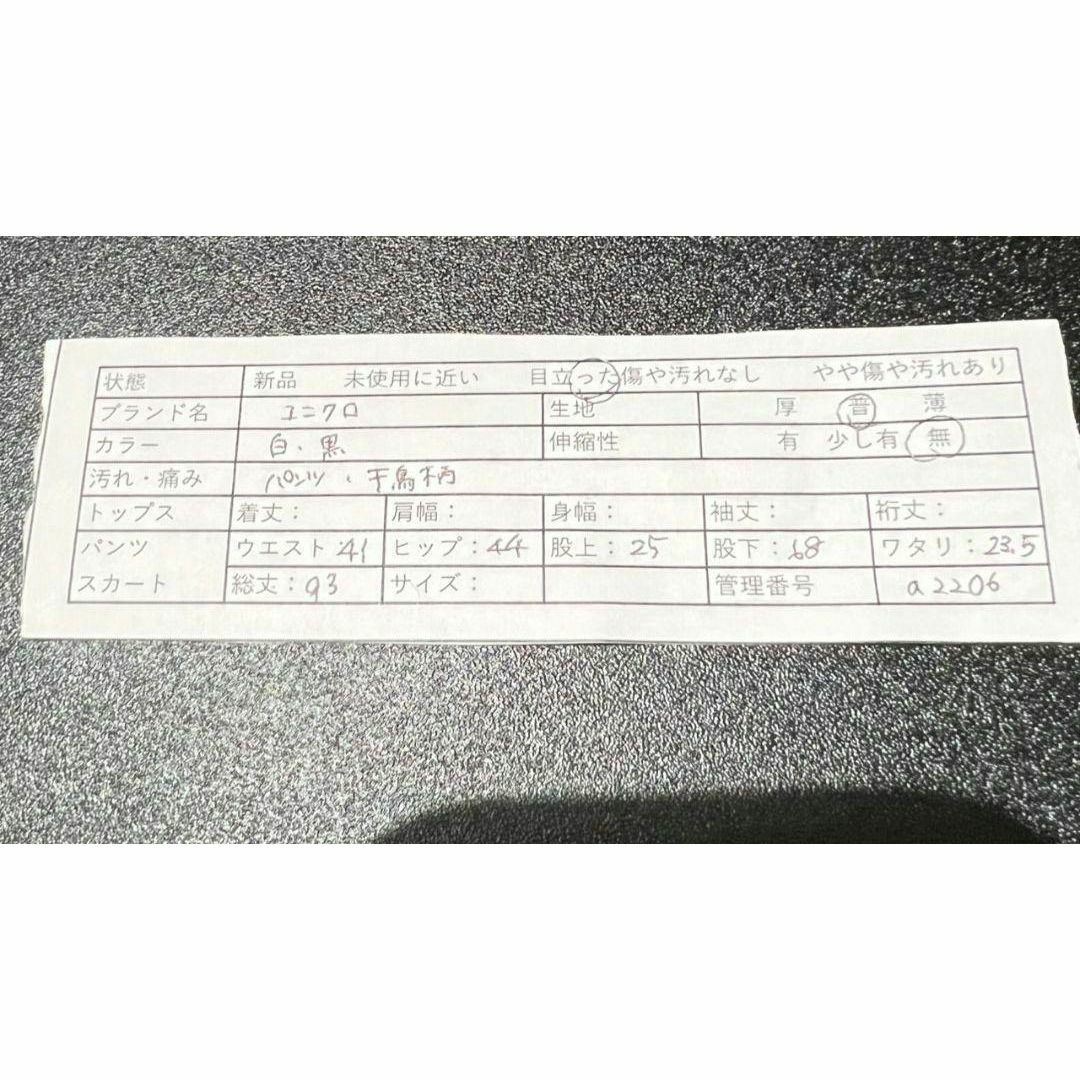 状態 新品 未使用に近い 目立った傷や汚れなし やや傷や汚れあり
ブランド名 ユニクロ 生地 厚 普 薄
カラー 白、黒 伸縮性 有 少し有 無
汚れ・痛み パンツ、千鳥柄
トップス 着丈: 肩幅: 身幅: 袖丈: 裄丈:
パンツ ウエスト:41 ヒップ:44 股上:25 股下:68 ワタリ:23.5
スカート 総丈:93 サイズ: 管理番号 a2206